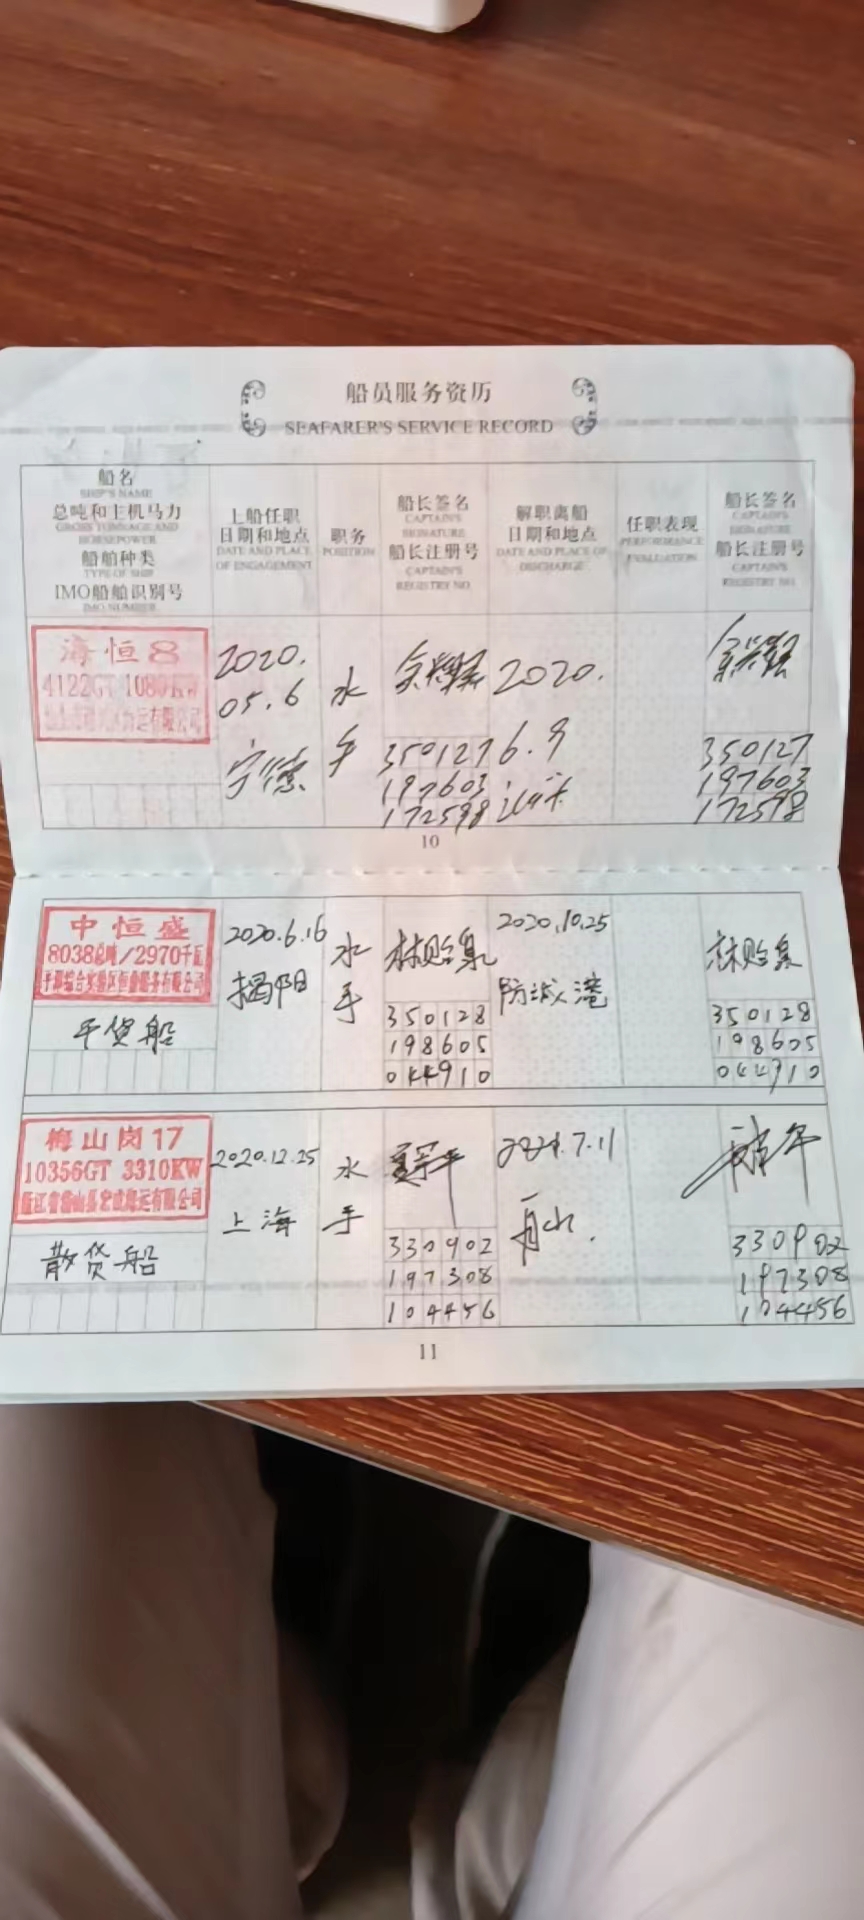 船员服务资历
SEAFARER'S SERVICE RECORD
船名
SHIP'S NAME
总吨和主机马力
GROSS TONNAGE AND
HORSEPOWER
船舶种类
TYPE OF SHIP
IMO船舶识别号
IMO NUMBER
上船任职
日期和地点
DATE AND PLACE
OF ENGAGEMENT
职务
POSITION
船长签名
CAPTAIN'S
SIGNATURE
船长注册号
CAPTAIN'S
REGISTRY NO
解职离船
日期和地点
DATE AND PLACE OF
DISCHARGE
任职表现
PERFORMANCE
EVALUATION
船长签名
CAPTAIN'S
SIGNATURE
船长注册号
CAPTAIN'S
REGISTRY NO.
海恒8
4122GT 1080KW
2020.
05.6
宁德
水
手
350127
197603
172598
2020.
6.9
350127
197603
172598
10
中恒盛
8038总吨/2970千瓦
干货船
2020.6.16
揭阳
水
手
林贻集
350128
198605
044910
2020.10.25
防城港
林贻集
350128
198605
044910
梅山岗17
10356GT 3310KW
散货船
2020.12.25
上海
水
手
330902
197308
104456
7.11
舟山.
330902
197308
104456
11